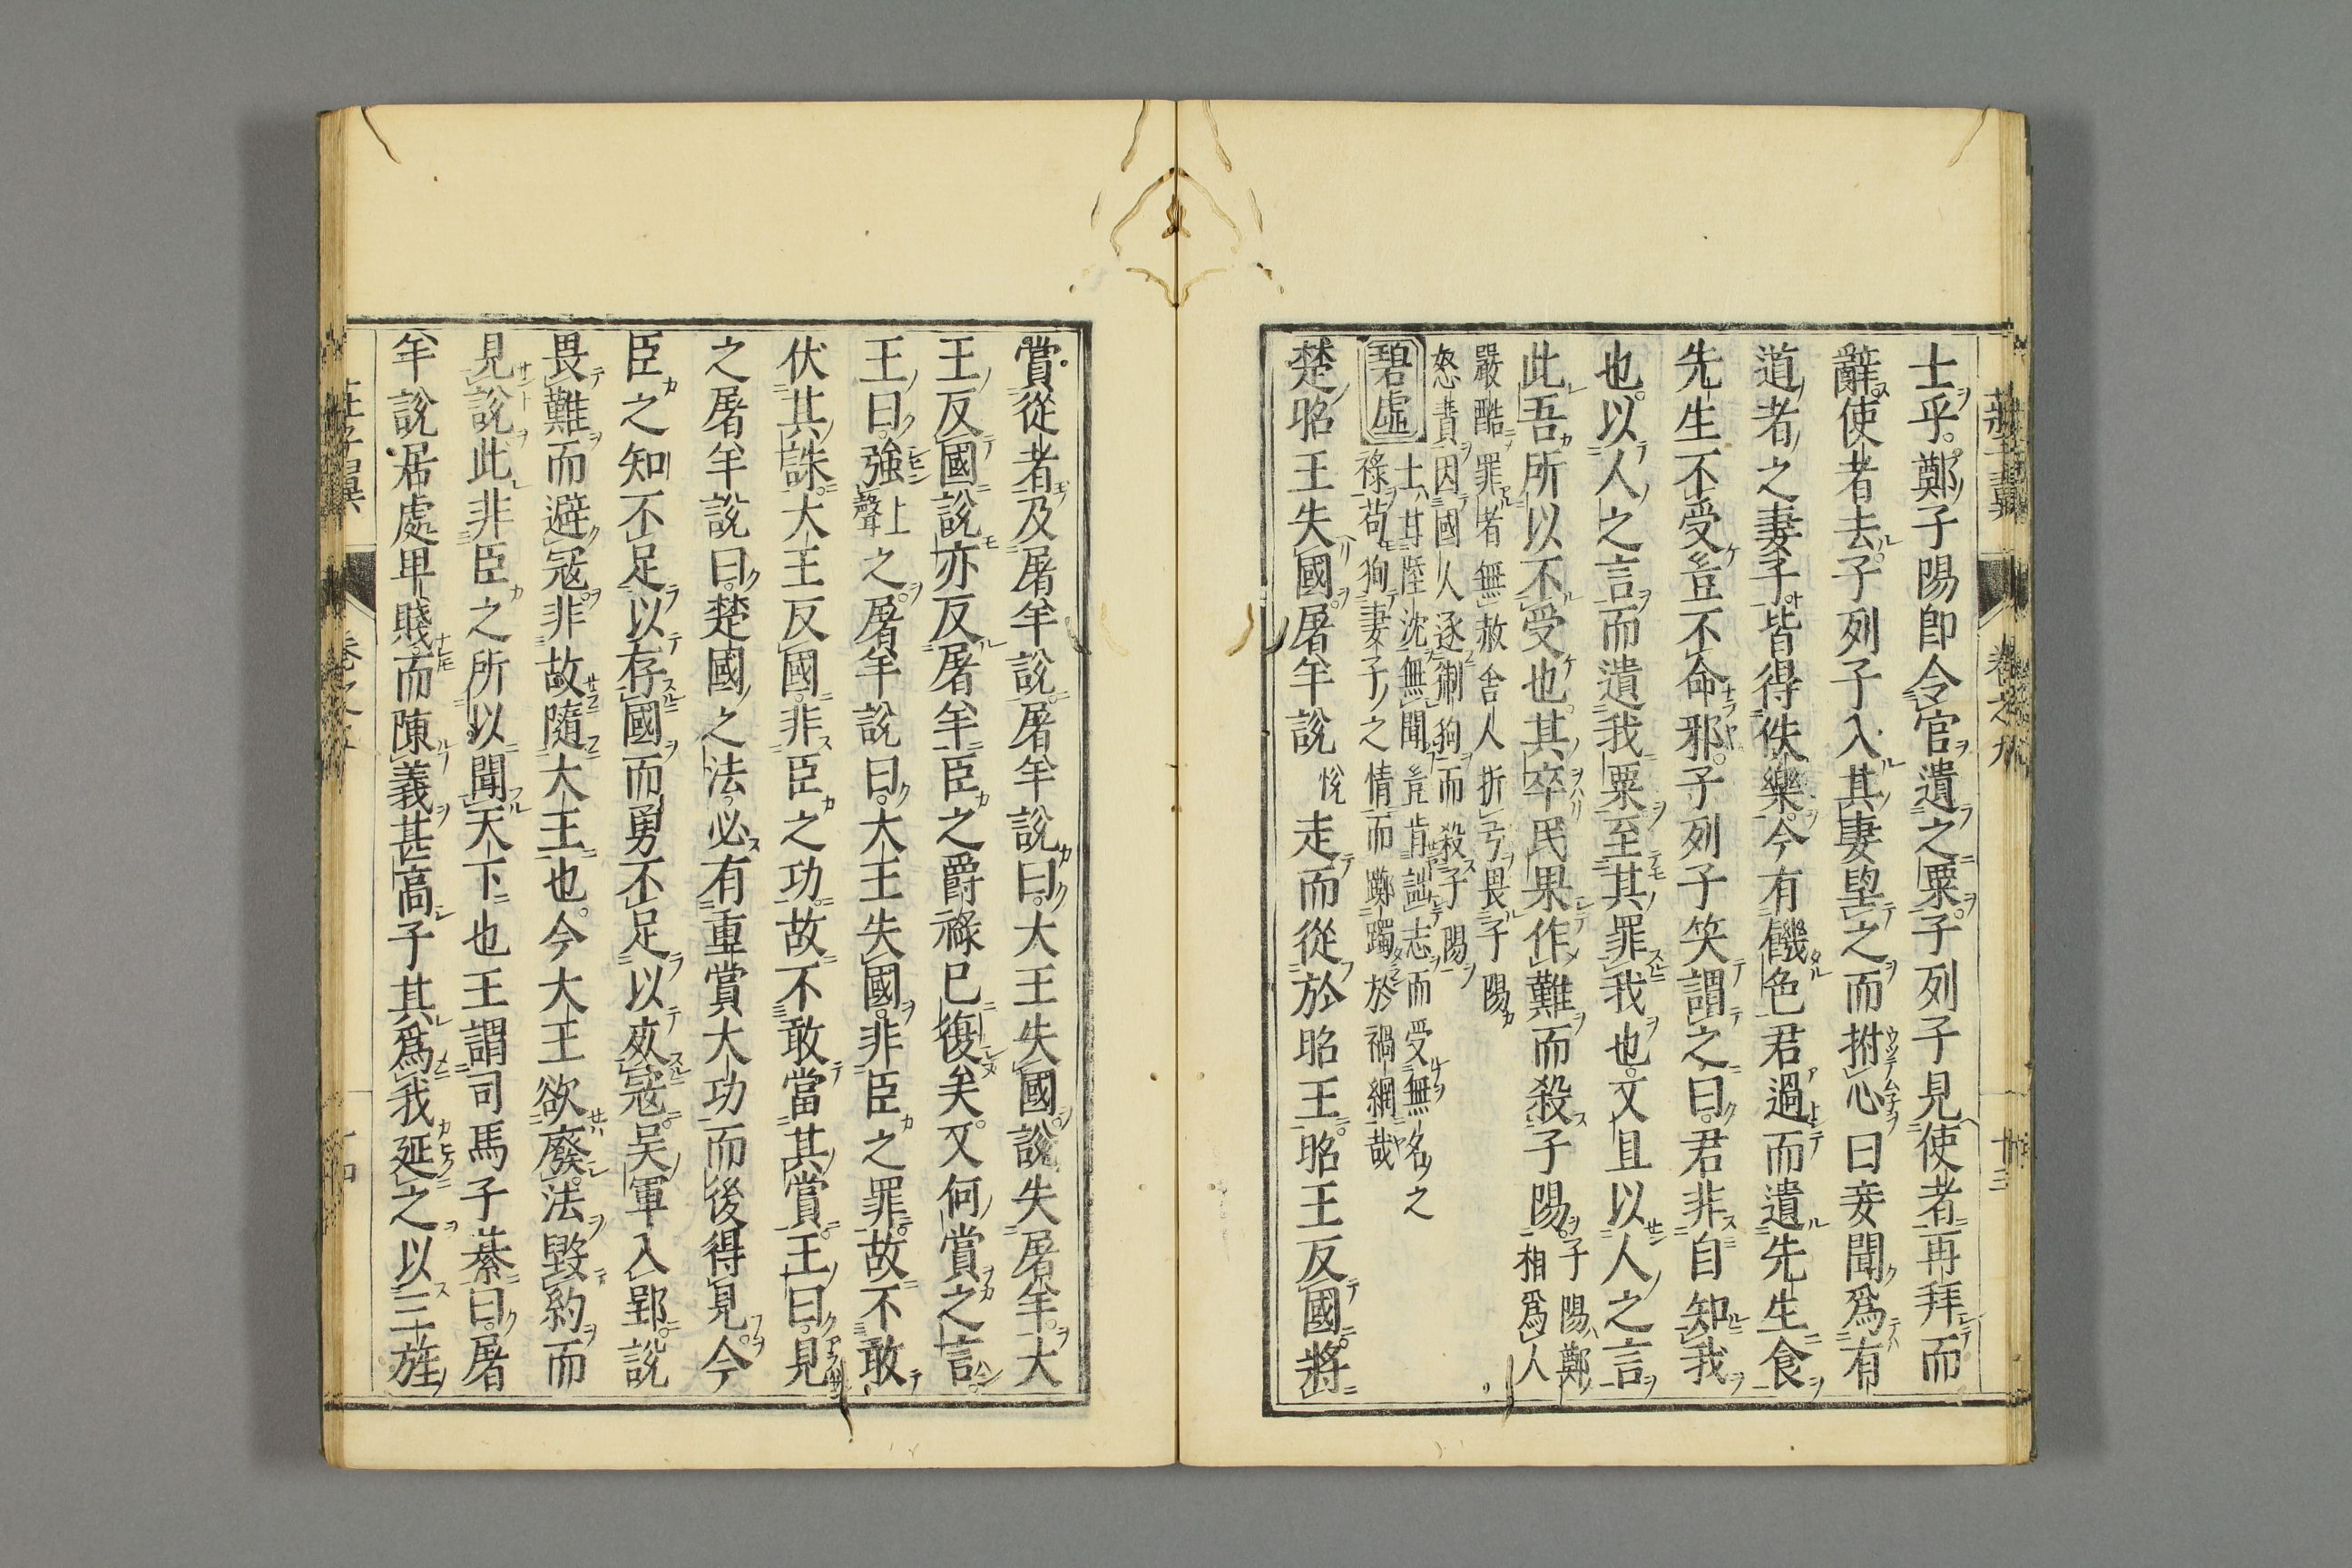 莊子翼 卷之九 廿三
士乎。鄭子陽即令官遺之粟。子列子見使者再拜而
辭。使者去。子列子入。其妻望之而拊心曰妾聞爲有
道者之妻子。皆得佚樂。今有饑色君過而遺先生食
先生不受豈不命邪。子列子笑謂之曰。君非自知我
也。以人之言而遺我粟至其罪我也。又且以人之言
此吾所以不受也。其卒民果作難而殺子陽。子陽鄭相爲人
嚴酷罪者無赦舍人折弓畏子陽
怒責因國人逐猘狗而殺子陽
碧虛 士其陸沈無聞豈肯詘志而受無名之
祿苟狥妻子之情而躑躅於禍網哉
楚昭王失國。屠羊說悅走而從於昭王。昭王反國。將
賞從者及屠羊說。屠羊說曰。大王失國說失屠羊。大
王反國說亦反屠羊。臣之爵祿已復矣。又何賞之言。
王曰。強上聲之。屠羊說曰。大王失國。非臣之罪。故不敢
伏其誅。大王反國。非臣之功。故不敢當其賞。王曰。見
之屠羊說曰。楚國之法。必有重賞大功而後得見。今
臣之知不足以存國而勇不足以死寇。吳軍入郢。說
畏難而避寇。非故隨大王也。今大王欲廢法毀約而
見說此非臣之所以聞天下也王謂司馬子綦曰。屠
羊說居處卑賤。而陳義甚高子其爲我延之以三旌
莊子翼 卷之九 廿四